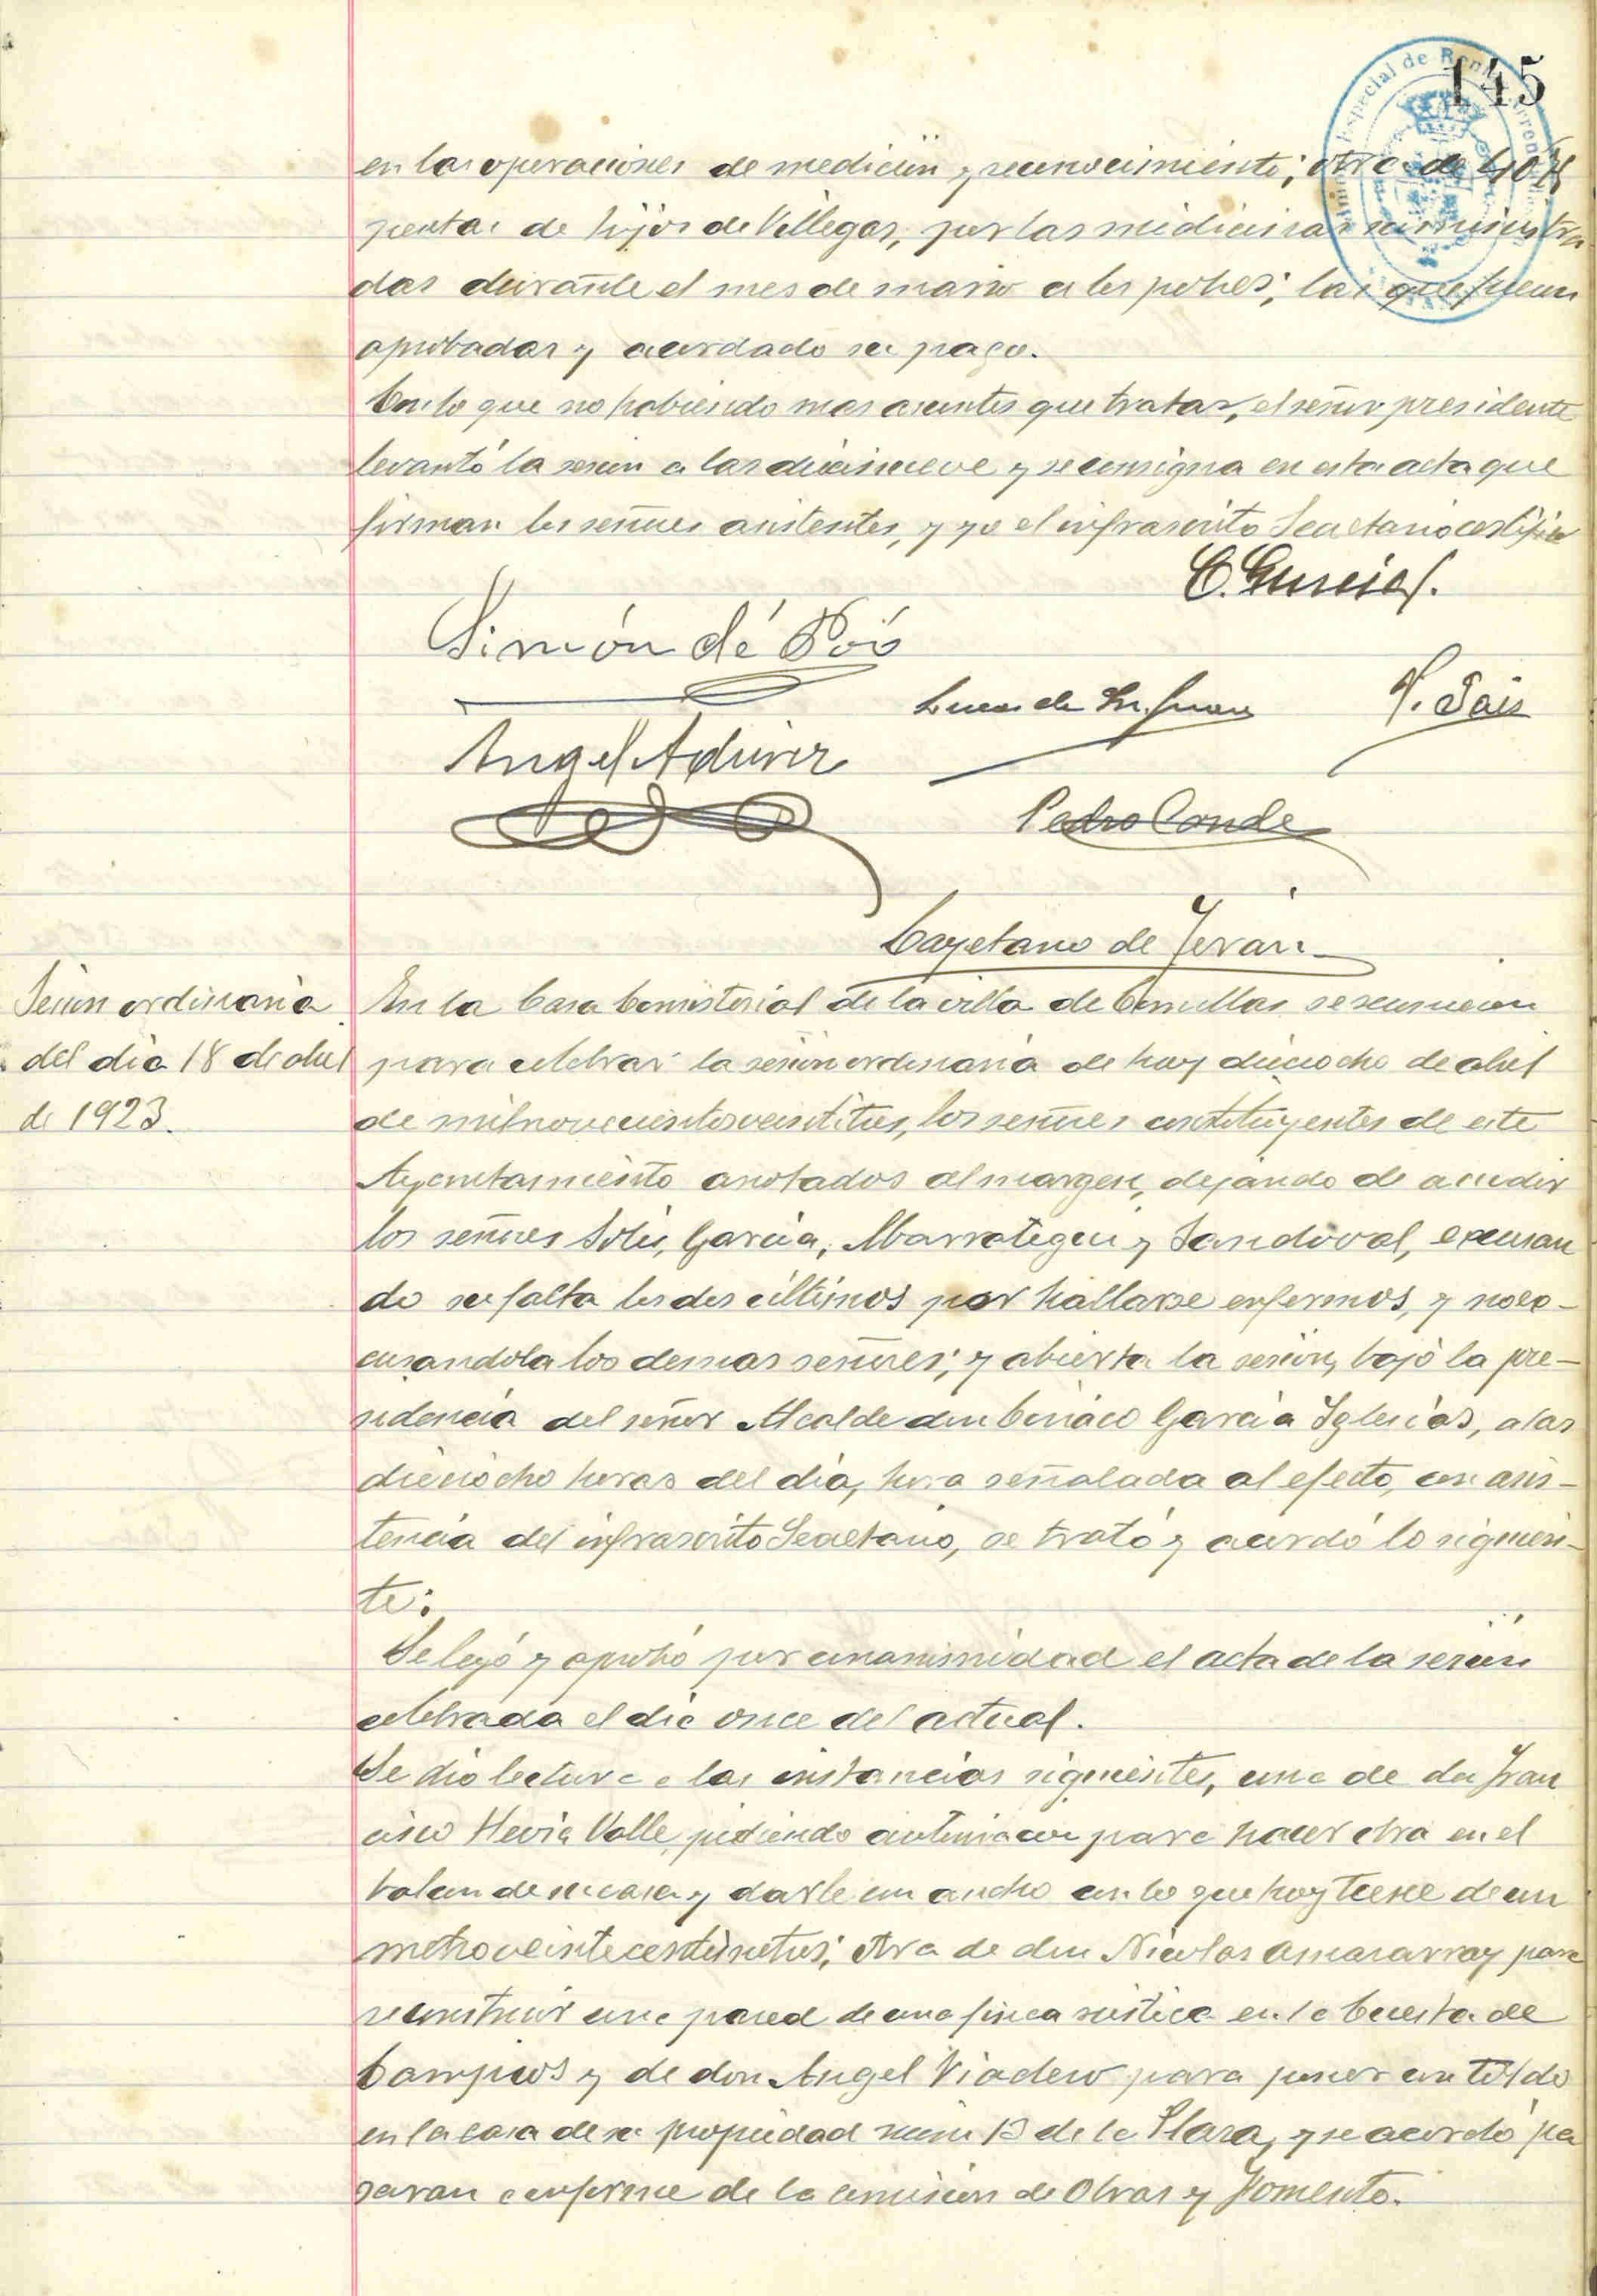 145
en las operaciones de medición y reconocimiento; otra de
pesetas de hijos de Villegas, por las medicinas suministra
das durante el mes de marzo a los pobres; las que fueron
aprobadas y acordado su pago.
Con lo que no habiendo mas asuntos que tratar, el señor presidente
levantó la sesion a las diecinueve y se consigna en esta acta que
firman los señores asistentes, y yo el infrascrito Secretario certifico
C. García
Simón de Poó
V. Sais
Angel
Pedro Conde
Cayetano de Terán
Sesion ordinaria
del dia 18 de abril
de 1923.
En la Casa Consistorial de la villa de Comillas se reunieron
para celebrar la sesion ordinaria de hoy dieciocho de abril
de mil novecientos veintitres, los señores constituyentes de este
Ayuntamiento anotados al margen, dejando de acudir
los señores Solis, Garcia, Abarrategui y Sandoval, excusan
do su falta los dos últimos por hallarse enfermos, y no ex-
cusandola los demas señores; y abierta la sesión, bajo la pre-
sidencia del señor Alcalde don Ciriaco García Iglesias, a las
dieciocho horas del dia, hora señalada al efecto, con asis-
tencia del infrascrito Secretario, se trató y acordó lo siguien-
te:
Se leyó y aprobó por unanimidad el acta de la sesión
celebrada el dia once del actual.
Se dio lectura a las instancias siguientes, una de don Fran
cisco Hevia Valle, pidiendo autorizacion para hacer obra en el
balcon de su casa y darle un ancho con lo que hoy tiene de un
metro veinte centimetros; otra de don Nicolas Amasarray para
reconstruir una pared de una finca rústica en la Cuesta de
Campios y de don Angel Viadero para poner un toldo
en la casa de su propiedad núm 13 de la Plaza, y se acordó pa
saran a informe de la comision de Obras y Fomento.